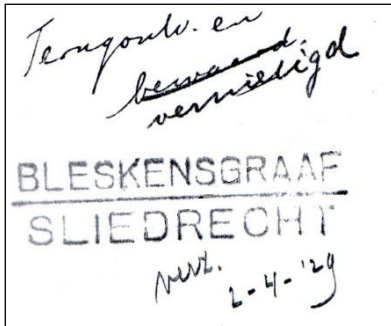 Terugontv. en
bewaard.
vernietigd
BLESKENSGRAAF
SLIEDRECHT
verz.
2-4-'29